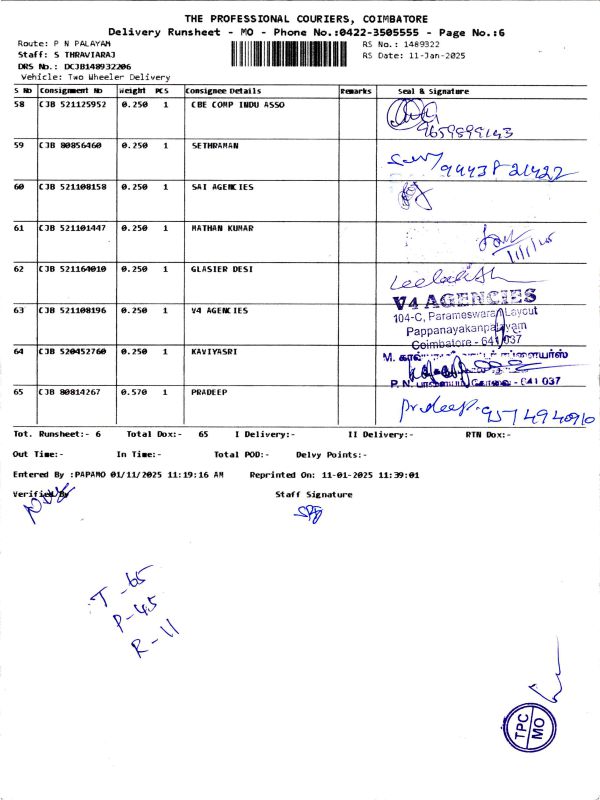 THE PROFESSIONAL COURIERS, COIMBATORE
Delivery Runsheet - MO - Phone No.:0422-3505555 - Page No.:6
Route: P N PALAYAM
RS No.: 1489322
Staff: S THRAVIARAJ
RS Date: 11-Jan-2025
DRS No.: DCJB148932206
Vehicle: Two Wheeler Delivery
S No Consignment No Weight PCS Consignee Details Remarks Seal & Signature
58 CJB 521125952 0.250 1 CBE COMP INDU ASSO
9659899143
59 CJB 80856460 0.250 1 SETHRAMAN
9443821422
60 CJB 521108158 0.250 1 SAI AGENCIES
61 CJB 521101447 0.250 1 MATHAN KUMAR
11/1/25
62 CJB 521164010 0.250 1 GLASIER DESI
63 CJB 521108196 0.250 1 V4 AGENCIES
V4 AGENCIES
104-C, Parameswaran Layout
Pappanayakanpalayam
Coimbatore - 641 037
64 CJB 520452760 0.250 1 KAVIYASRI
P. N. பாளையம் கோவை - 641 037
65 CJB 80814267 0.570 1 PRADEEP
Pradeep.
Tot. Runsheet:- 6 Total Dox:- 65 I Delivery:- II Delivery:- RTN Dox:-
Out Time:- In Time:- Total POD:- Delvy Points:-
Entered By :PAPAMO 01/11/2025 11:19:16 AM Reprinted On: 11-01-2025 11:39:01
Verified By Staff Signature
T - 65
P - 45
R - 11
TPC
MO